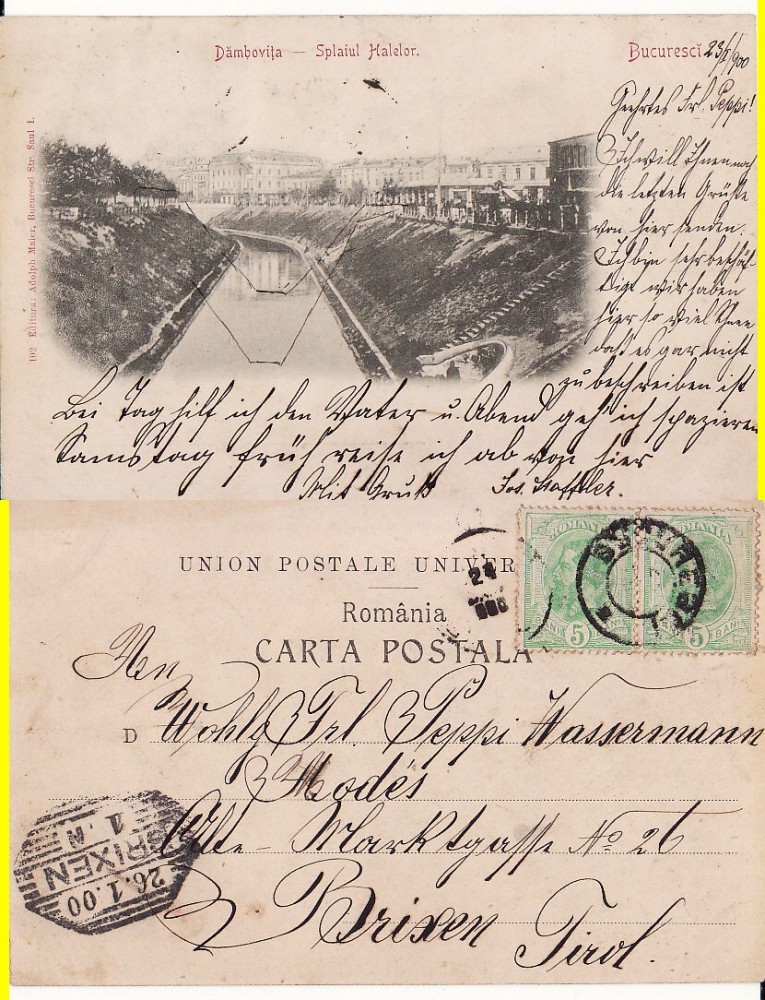 Dâmbovița — Splaiul Halelor.
Bucuresci 23/1/900
102 Editura: Adolph Maier, Bucuresci Str. Saul 1.
Geehrtes Frl. Peppi!
Ich will Ihnen noch
die letzten Grüße
von hier senden.
Ich bin sehr beschäf-
tigt wir haben
hier so viel
daß es gar nicht
zu beschreiben ist
Bei Tag hilf ich den Vater u. Abend geh ich spazieren
Samstag früh reise ich ab von hier
Mit Gruß Jos.
UNION POSTALE UNIVER
România
CARTA POSTALA
24
ROMANIA
5
BANI
ROMANIA
5
BANI
BUCURESCI
D Wohlg Frl Peppi Wassermann
Modes
Alte-Marktgasse No 26
Brixen
Tirol.
BRIXEN
1. N
26.1.00